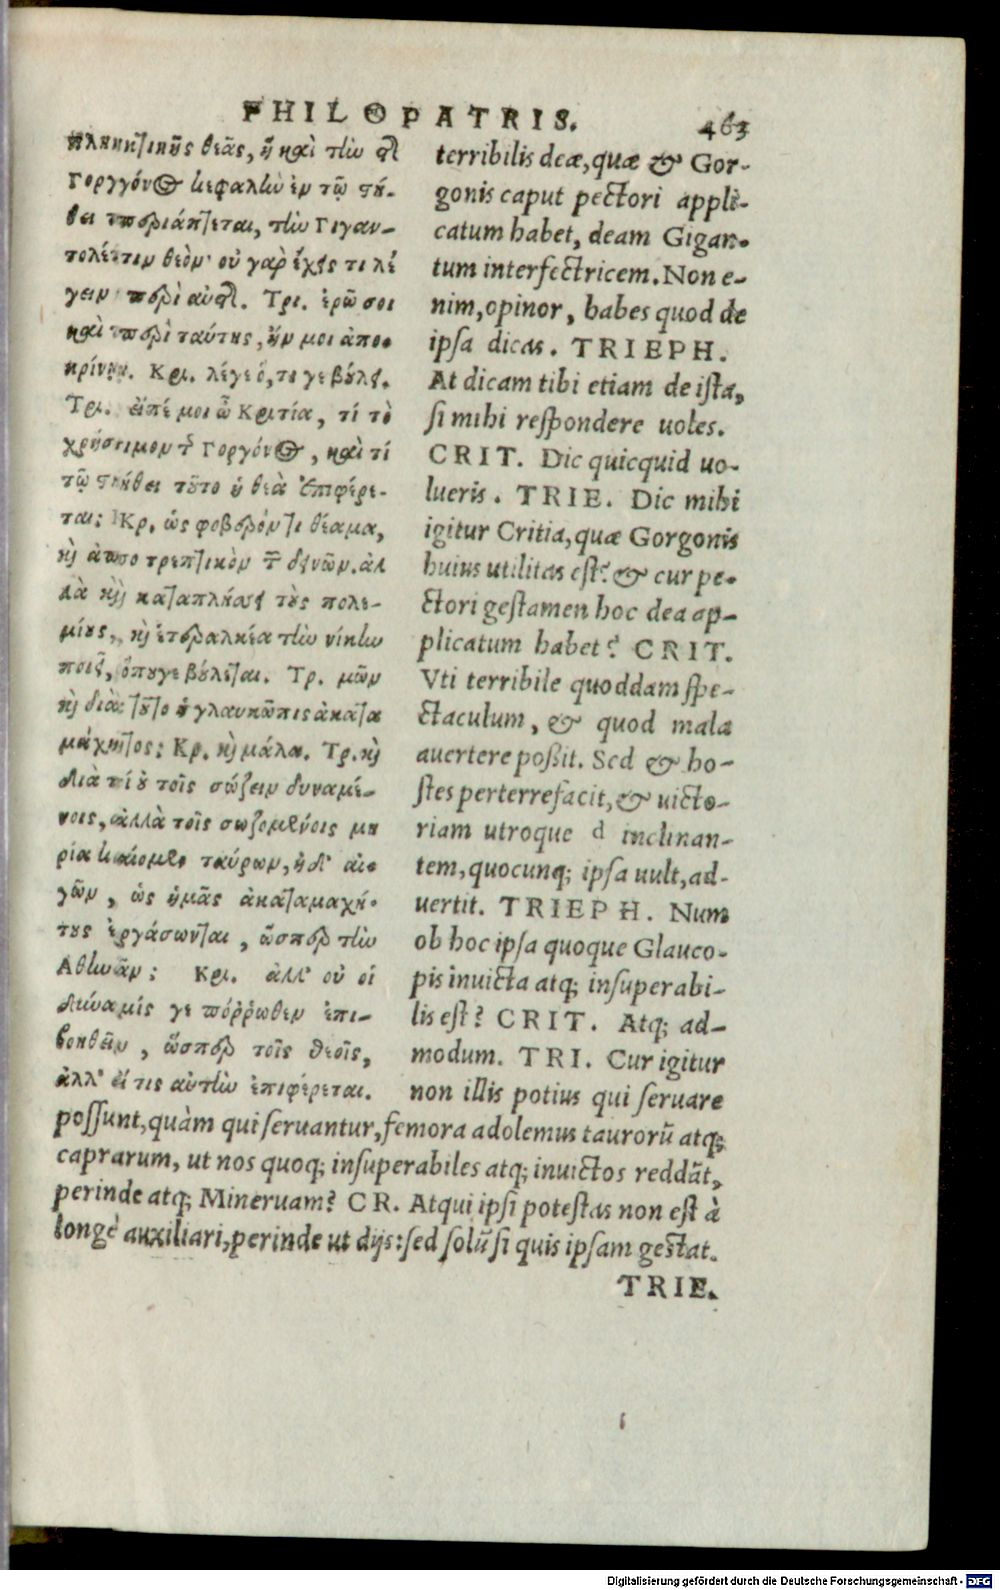 PHILOPATRIS.
463
πληκτικῆς θεᾶς, ἣ καὶ τὴν τῆς
Γοργγόνος κεφαλὴν ἐν τῷ στή-
θει περιάπτεται, τὴν Γιγαν-
τολέτιν θεὸν· οὐ γὰρ ἔχεις τι λέ
γειν περὶ αὐτῆς. Τρι. ἐρῶ σοι
καὶ περὶ ταύτης, ἤν μοι ἀπο-
κρίνῃ. Κρι. λέγε ὅ, τι γε βούλει.
Τρι. εἰπέ μοι ὦ Κριτία, τί τὸ
χρήσιμον τῆς Γοργόνος, καὶ τί
τῷ στήθει τοῦτο ἡ θεὰ ἐπιφέρε-
ται; Κρ. ὡς φοβερόν τι θέαμα,
καὶ ἀποτρεπτικὸν τῶν δεινῶν. ἀλ
λὰ καὶ καταπλήσσει τοὺς πολε-
μίους, καὶ ἑτεραλκέα τὴν νίκην
ποιεῖ, ὅπου γε βούλεται. Τρ. μῶν
καὶ διὰ τοῦτο ἡ γλαυκῶπις ἀκατα
μάχητος; Κρ. καὶ μάλα. Τρ. καὶ
διὰ τί οὐ τοῖς σώζειν δυναμέ-
νοις, ἀλλὰ τοῖς σωζομένοις μη
ρία καίομεν ταύρων, ἠδ' αἰ-
γῶν, ὡς ἡμᾶς ἀκαταμαχή-
τους ἐργάσωνται, ὥσπερ τὴν
Ἀθηνᾶν; Κρι. ἀλλ' οὔ οἱ
δύναμίς γε πόῤῥωθεν ἐπι-
βοηθεῖν, ὥσπερ τοῖς θεοῖς,
ἀλλ' εἴ τις αὐτὴν ἐπιφέρεται.
terribilis deæ, quæ & Gor-
gonis caput pectori appli-
catum habet, deam Gigan-
tum interfectricem. Non e-
nim, opinor, habes quod de
ipsa dicas. TRIEPH.
At dicam tibi etiam de ista,
si mihi respondere uoles.
CRIT. Dic quicquid uo-
lueris. TRIE. Dic mihi
igitur Critia, quæ Gorgonis
huius utilitas est? & cur pe-
ctori gestamen hoc dea ap-
plicatum habet? CRIT.
Vti terribile quoddam spe-
ctaculum, & quod mala
auertere possit. Sed & ho-
stes perterrefacit, & uicto-
riam utroque d inclinan-
tem, quocunq; ipsa uult, ad-
uertit. TRIEPH. Num
ob hoc ipsa quoque Glauco-
pis inuicta atq; insuperabi-
lis est? CRIT. Atq; ad-
modum. TRI. Cur igitur
non illis potius qui seruare
possunt, quàm qui seruantur, femora adolemus taurorũ atq;
caprarum, ut nos quoq; insuperabiles atq; inuictos reddãt,
perinde atq; Mineruam? CR. Atqui ipsi potestas non est à
longè auxiliari, perinde ut dijs: sed solũ si quis ipsam gestat.
TRIE.
Digitalisierung gefördert durch die Deutsche Forschungsgemeinschaft - DFG